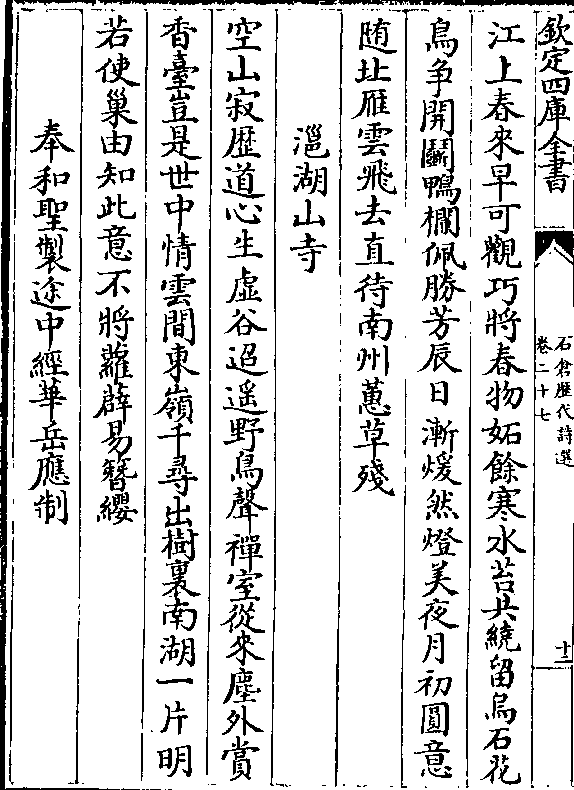 欽定四庫全書
石倉歴代詩選
卷二十七
十三
江上春來早可觀巧將春物妬餘寒水苔共繞留烏石花
鳥争開鬭鴨欄佩勝芳辰日漸煖然燈美夜月初圓意
随北雁雲飛去直待南州蕙草殘
㴩湖山寺
空山寂歴道心生虚谷迢遥野鳥聲禪室從來塵外賞
香臺豈是世中情雲間東嶺千尋出樹裏南湖一片明
若使巢由知此意不將蘿薜易簪纓
奉和聖製途中經華岳應制